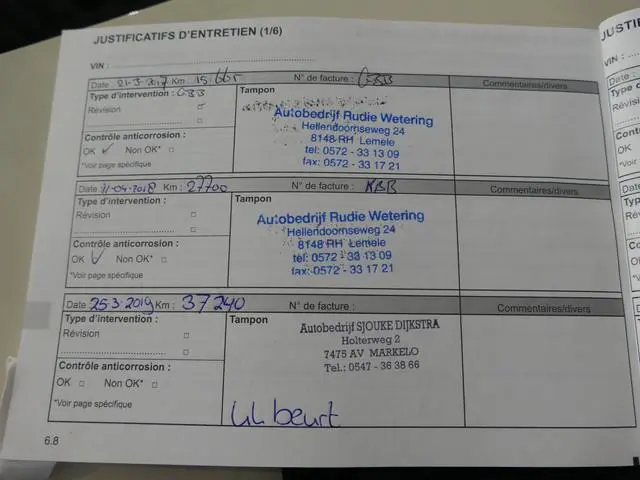 JUSTIFICATIFS D'ENTRETIEN (1/6)
VIN :
Date 21-3-2017 Km : 15.665 N° de facture : GBB Commentaires/divers
Type d'intervention : GBB Tampon
Révision
Autobedrijf Rudie Wetering
Hellendoornseweg 24
8148 RH Lemele
tel: 0572 - 33 13 09
fax: 0572 - 33 17 21
Contrôle anticorrosion :
OK ✓ Non OK* □
*Voir page spécifique
Date 11-04-2018 Km : 27700 N° de facture : KBB Commentaires/divers
Type d'intervention : Tampon
Révision □
Autobedrijf Rudie Wetering
Hellendoornseweg 24
8148 RH Lemele
tel: 0572 - 33 13 09
fax: 0572 - 33 17 21
Contrôle anticorrosion :
OK ✓ Non OK* □
*Voir page spécifique
Date 25-3-2019 Km : 37240 N° de facture : Commentaires/divers
Type d'intervention : Tampon
Révision □
Autobedrijf SJOUKE DIJKSTRA
Holterweg 2
7475 AV MARKELO
Tel.: 0547 - 36 38 66
Contrôle anticorrosion :
OK □ Non OK* □
*Voir page spécifique
beurt
6.8
JUSTI
VIN :
Date
Type d
Révision
Cont
OK
*Voir